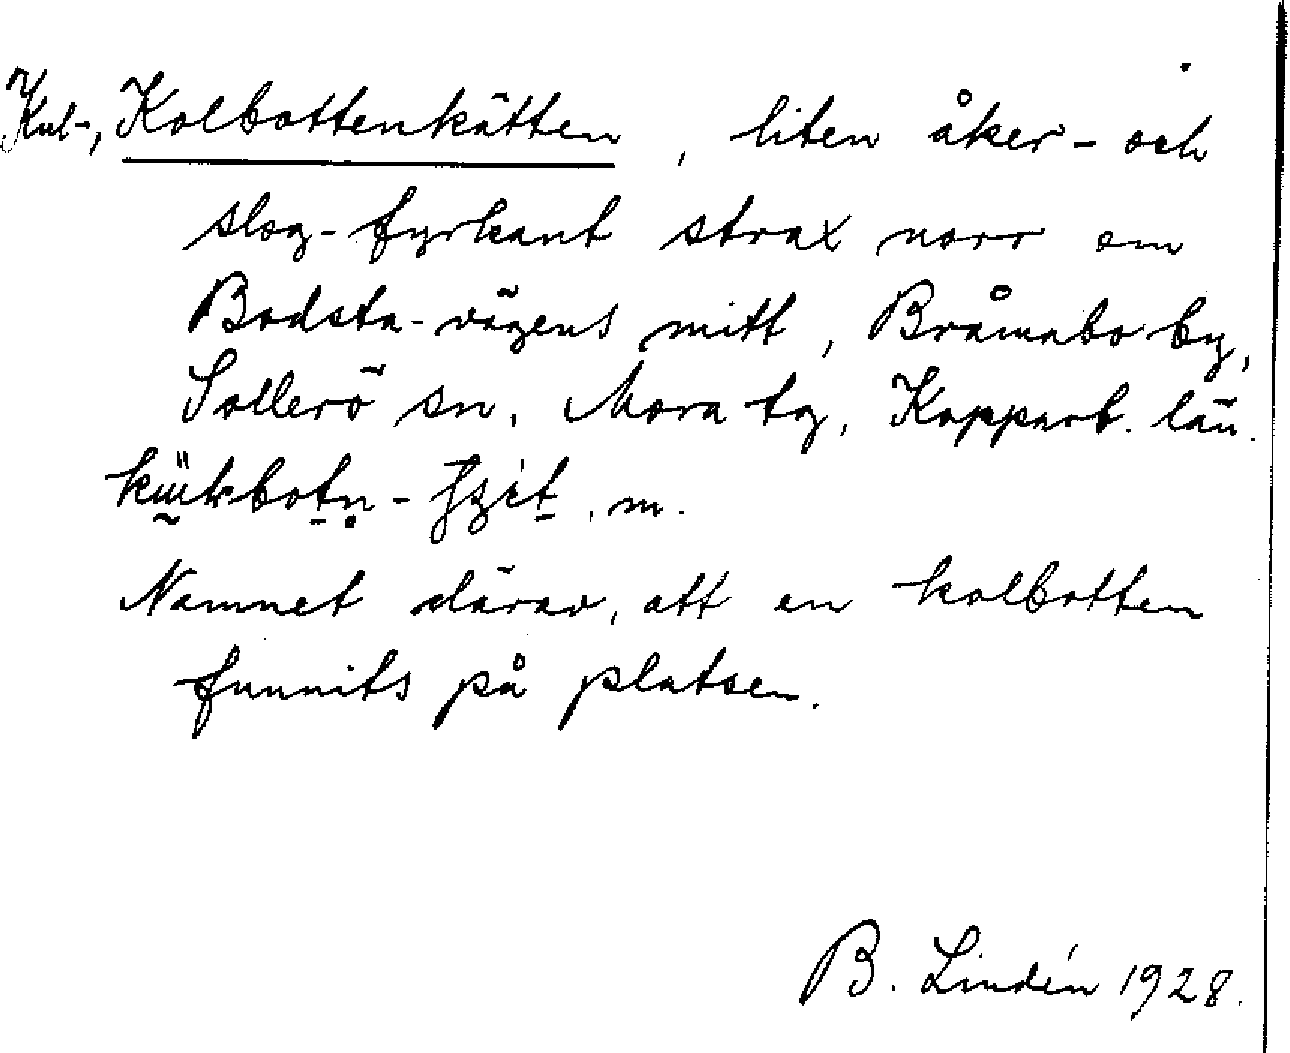 Kul-, Kolbottenkätten, liten åker- och
slog-fyrkant strax norr om
Bodsta-vägens mitt, Bråmabo by,
Sollerö sn, Mora tg, Kopparb. län.
m.
Namnet därav, att en kolbotten
funnits på platsen.
B. Lindén 1928.